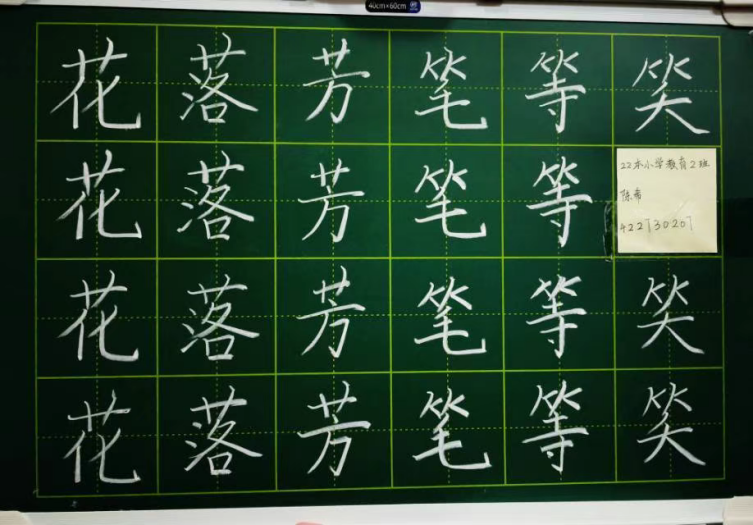 40cm×60cm
花落芳笔等笑
花落芳笔等
22本小学教育2班
陈希
4227130207
花落芳笔等笑
花落芳笔等笑